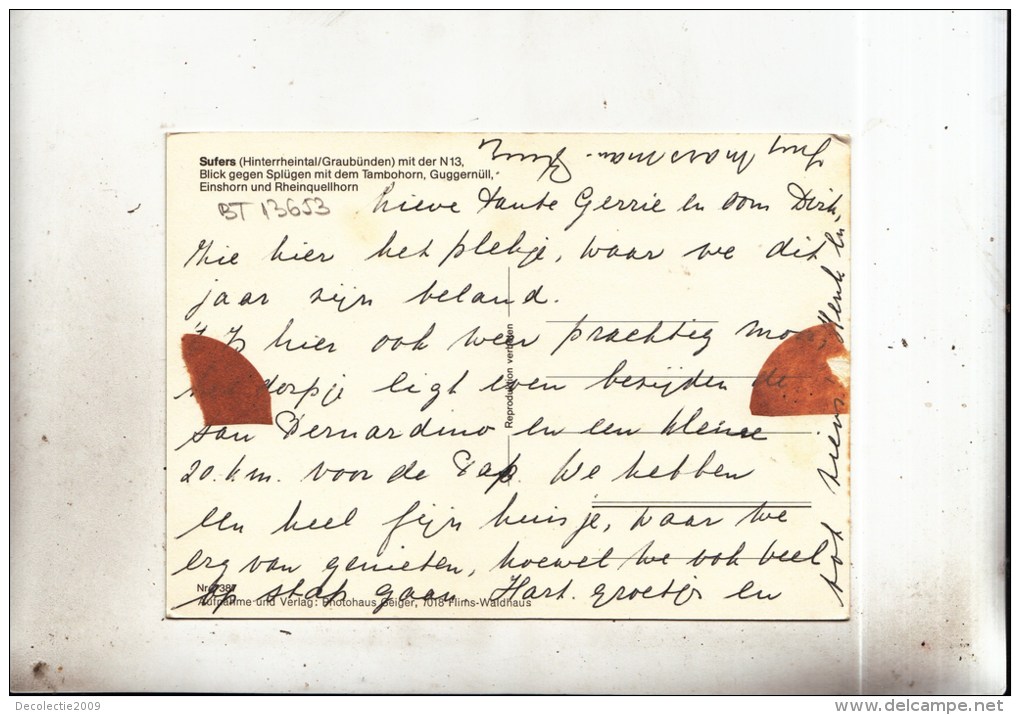 Sufers (Hinterrheintal/Graubünden) mit der N13,
Blick gegen Splügen mit dem Tambohorn, Guggernüll,
Einshorn und Rheinquellhorn
BT 13653
Lieve tante Gerrie en oom Dirk,
Zie hier het plekje, waar we dit
jaar zijn beland.
't Is hier ook weer prachtig mooi
dorpje ligt even bezijden de
San Bernardino en een kleine
20 k.m. voor de Pas. We hebben
een heel fijn huisje, waar we
erg van genieten, hoewel we ook veel
op stap gaan. Hart. groetjes en
tot ziens, Henk en
Reproduktion verboten
Nr. 7387
Aufnahme und Verlag: Photohaus Geiger, 7018 Flims-Waldhaus
Decolectie2009
www.delcampe.net